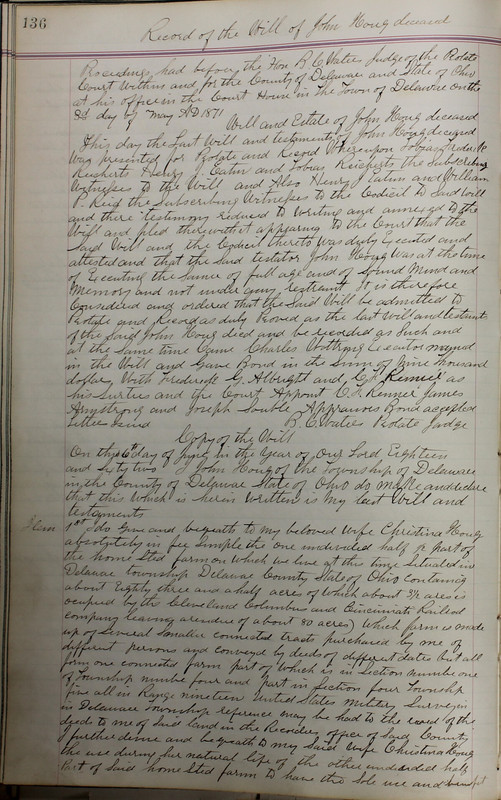 136
Record of the Will of John Houg deceased
Proceedings had before the Hon B. C. Waties Judge of the Probate
Court within and for the County of Delaware and State of Ohio
at his office in the Court House in the Town of Delaware on the
3d day of May AD 1871
Will and Estate of John Houg deceased
This day the Last Will and testament of John Houg deceased
was presented for Probate and Record Whereupon Tobias
Henry J. Eaton and Tobias the Subscribing
Witnesses to the Will and Also Henry J Eaton and William
P. Reid the Subscribing Witnesses to the Codicil to Said Will
and there testimony reduced to writing and annexed to the
Will and filed therewith it appearing to the Court that the
Said Will and the Codicil thereto was duly Executed and
attested and that the Said testator John Houg was at the time
of Executing the Same of full age and of Sound Mind and
Memory and not under any restraint It is therefore
Considered and ordered that the Said Will be admitted to
Probate and Record as duly Proved as the last Will and testament
of the Said John Houg died and be recorded as Such and
at the Same time Came Charles Executor named
in the Will and Gave Bond in the Sum of Nine thousand
dollars With Frederick G. Albright and C. F. Renner as
his Surties and the Court Appoint C. F. Renner James
Armstrong and Joseph Appraisors Bond accepted
B. C. Waties Probate Judge
Copy of the Will
On this 6th day of in the Year of Our Lord Eighteen
and Sixty two I John Houg of the Township of Delaware
in the County of Delaware State of Ohio do make and declare
that this which is herein written is My last Will and
testament
Item
1st I do Give and bequeath to my beloved Wife Christina Houg
absolutely in fee Simple the one undivided half ½ part of
the home Sted farm on which we live at this time Situated in
Delaware township Delaware County State of Ohio containing
about Eighty three and a half acres of which about 3½ acres is
ocupied by the Cleveland Columbus and Cincinnati Railroad
company leaving a residue of about 80 acres) Which farm is made
up of Several Smaller connected tracts purchased by me of
different persons and conveyed by deeds of different dates but all
form one connected farm part of which is in Section number one
of Township number four and part in Section four Township
five all in Range nineteen United States Military Surveys in
in Delaware Township reference may be had to the record of the
deeds to me of Said land in the Recorders office of Said County
I further devise and bequeath to my Said Wife Christina Houg
the use during her natural life of the other undivided half
Part of Said home Sted farm to have the Sole use and benefit